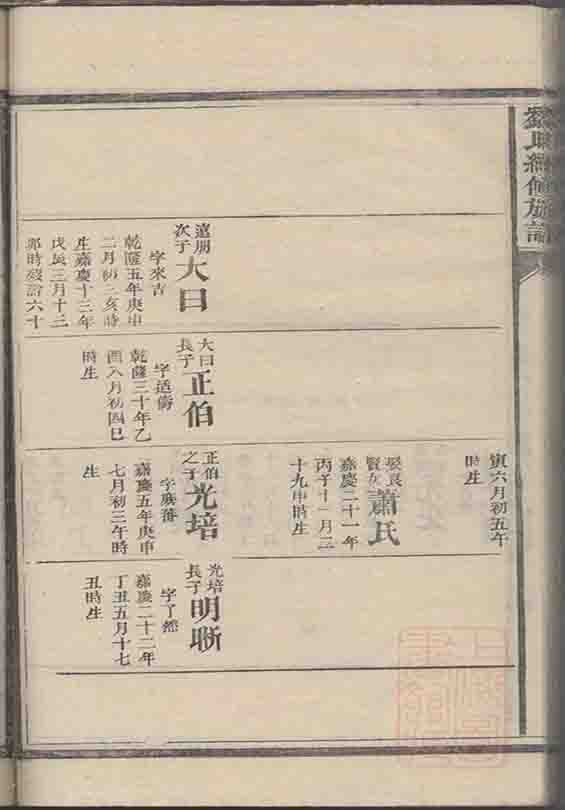 氏續修族譜
遠朋
次子
大曰
字來吉
乾隆五年庚申
二月初二亥時
生嘉慶十三年
戊辰三月十二
卯時歿詣六十
大曰
長子
正伯
字适衡
乾隆三十年乙
酉八月初四巳
時生
寅六月初五午
時生
蕭氏
嘉慶二十一年
丙子十一月二
十九申時生
正伯
之子
光培
嘉慶五年庚申
七月初三午時
生
光培
長子
明晰
字了然
嘉慶二十二年
丁丑五月十七
丑時生